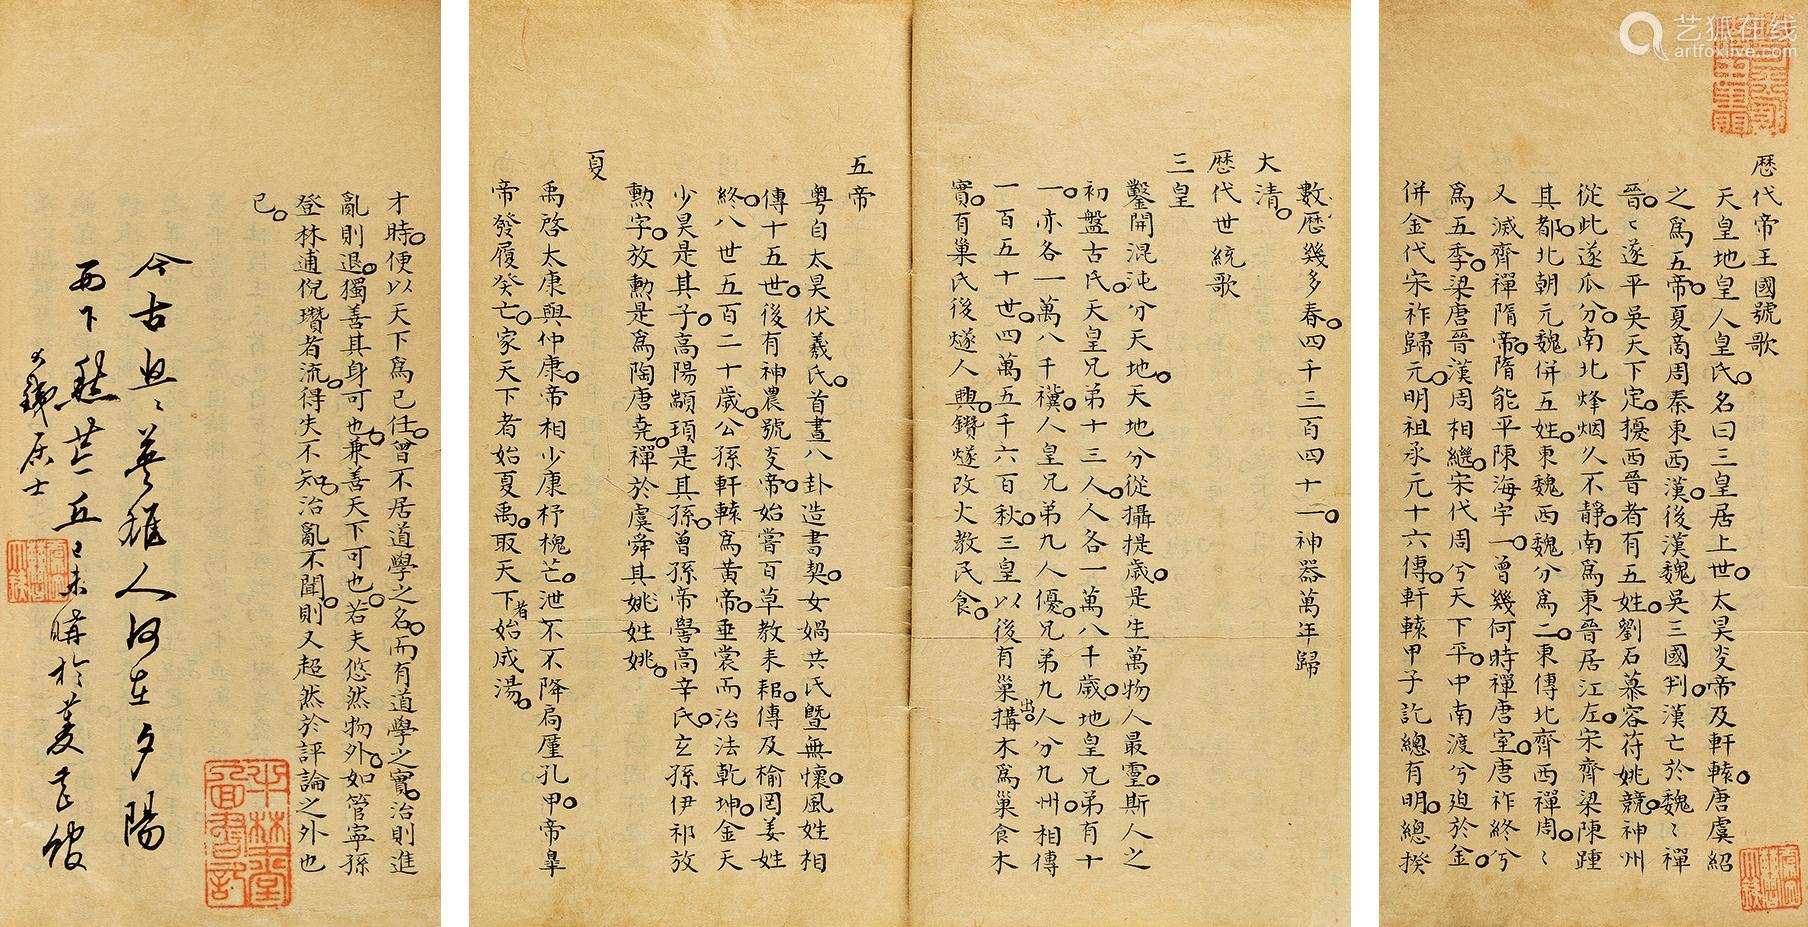 歷代帝王國號歌
天皇地皇人皇氏名曰三皇居上世太昊炎帝及軒轅唐虞紹
之為五帝夏商周秦東西漢後漢魏吳三國判漢亡於魏〻禪
晉〻遂平吳天下定擾西晉者有五姓劉石慕容苻姚競神州
從此遂瓜分南北烽烟久不靜南為東晉居江左宋齊梁陳踵
其都北朝元魏併五姓東魏西魏分為二東傳北齊西禪周〻
又滅齊禪隋帝隋能平陳海宇一曾幾何時禪唐室唐祚終兮
為五季梁唐晉漢周相繼宋代周兮天下平中南渡兮迫於金
併金代宋祚歸元明祖承元十六傳軒轅甲子訖總有明總揆
數歷幾多春四千三百四十二神器萬年歸
大清
歷代世統歌
三皇
鑿開混沌分天地天地分從攝提歲是生萬物人最靈斯人之
初盤古氏天皇兄弟十三人人各一萬八千歲地皇兄弟有十
一亦各一萬八千禩人皇兄弟九人優兄弟九人分九州相傳
一百五十世四萬五千六百秋三皇以後有巢出搆木為巢食木
實有巢氏後燧人興鑽燧改火教民食
五帝
粵自太昊伏羲氏首畫八卦造書契女媧共氏暨無懷風姓相
傳十五世後有神農號炎帝始嘗百草教耒耜傳及榆罔姜姓
終八世五百二十歲公孫軒轅為黃帝垂裳而治法乾坤金天
少昊是其子高陽顓頊是其孫曾孫帝嚳高辛氏玄孫伊祁放
勳字放勳是為陶唐堯禪於虞舜其姚姓姚
夏
禹啓太康與仲康帝相少康杼槐芒泄不不降扃厪孔甲帝皐
帝發履癸亡家天下者始夏禹取天下者始成湯
才時便以天下為已任曾不居道學之名而有道學之實治則進
亂則退獨善其身可也兼善天下可也若夫悠然物外如管寧孫
登林逋倪瓚者流得失不知治亂不聞則又超然於評論之外也
已
今古興〻英雄人何在夕陽
西下
居士
己未購於
艺狐在线
artfoxlive.com